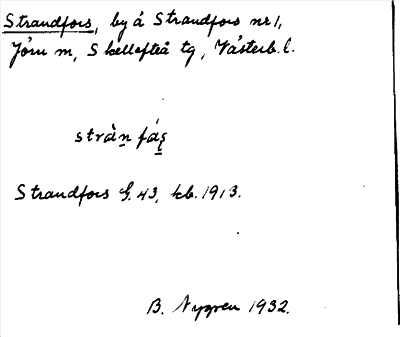 Strandfors, by å Strandfors nr 1,
Jörn sn, Skellefteå tg, Västerb. l.
stràn fás̨
Strandfors G. 43, kb. 1913.
B. Nygren 1932.